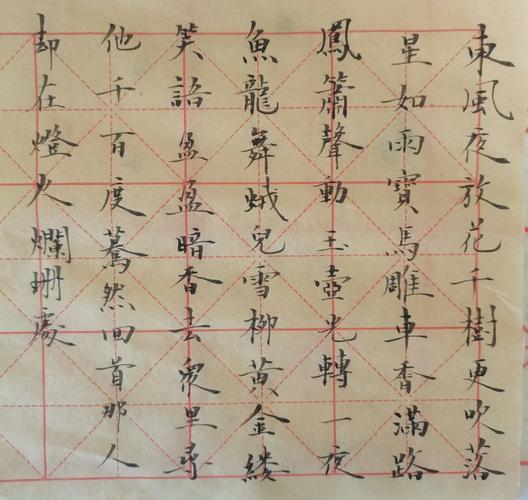 東風夜放花千樹更吹落
星如雨寶馬雕車香滿路
鳳簫聲動玉壺光轉一夜
魚龍舞蛾兒雪柳黃金縷
笑語盈盈暗香去衆里尋
他千百度驀然回首那人
却在燈火爛珊處